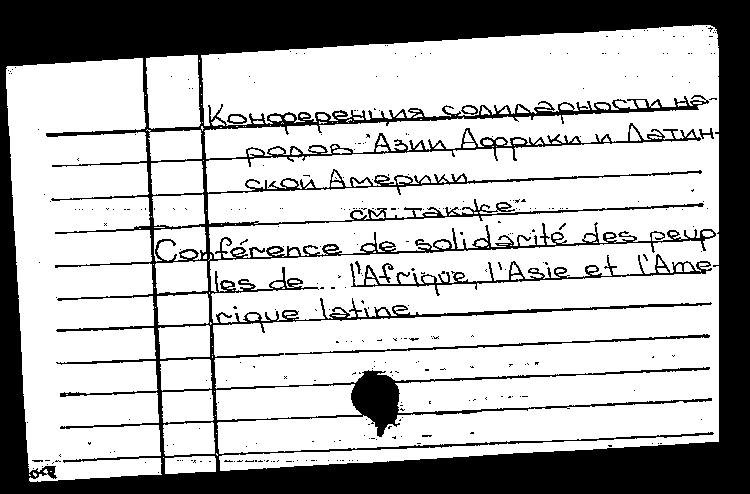 Конференция солидарности на-
родов Азии, Африки и Латин-
ской Америки
см. также
Conférence de solidarité des peup-
les de l'Afrique, l'Asie et l'Ame-
rique latine.